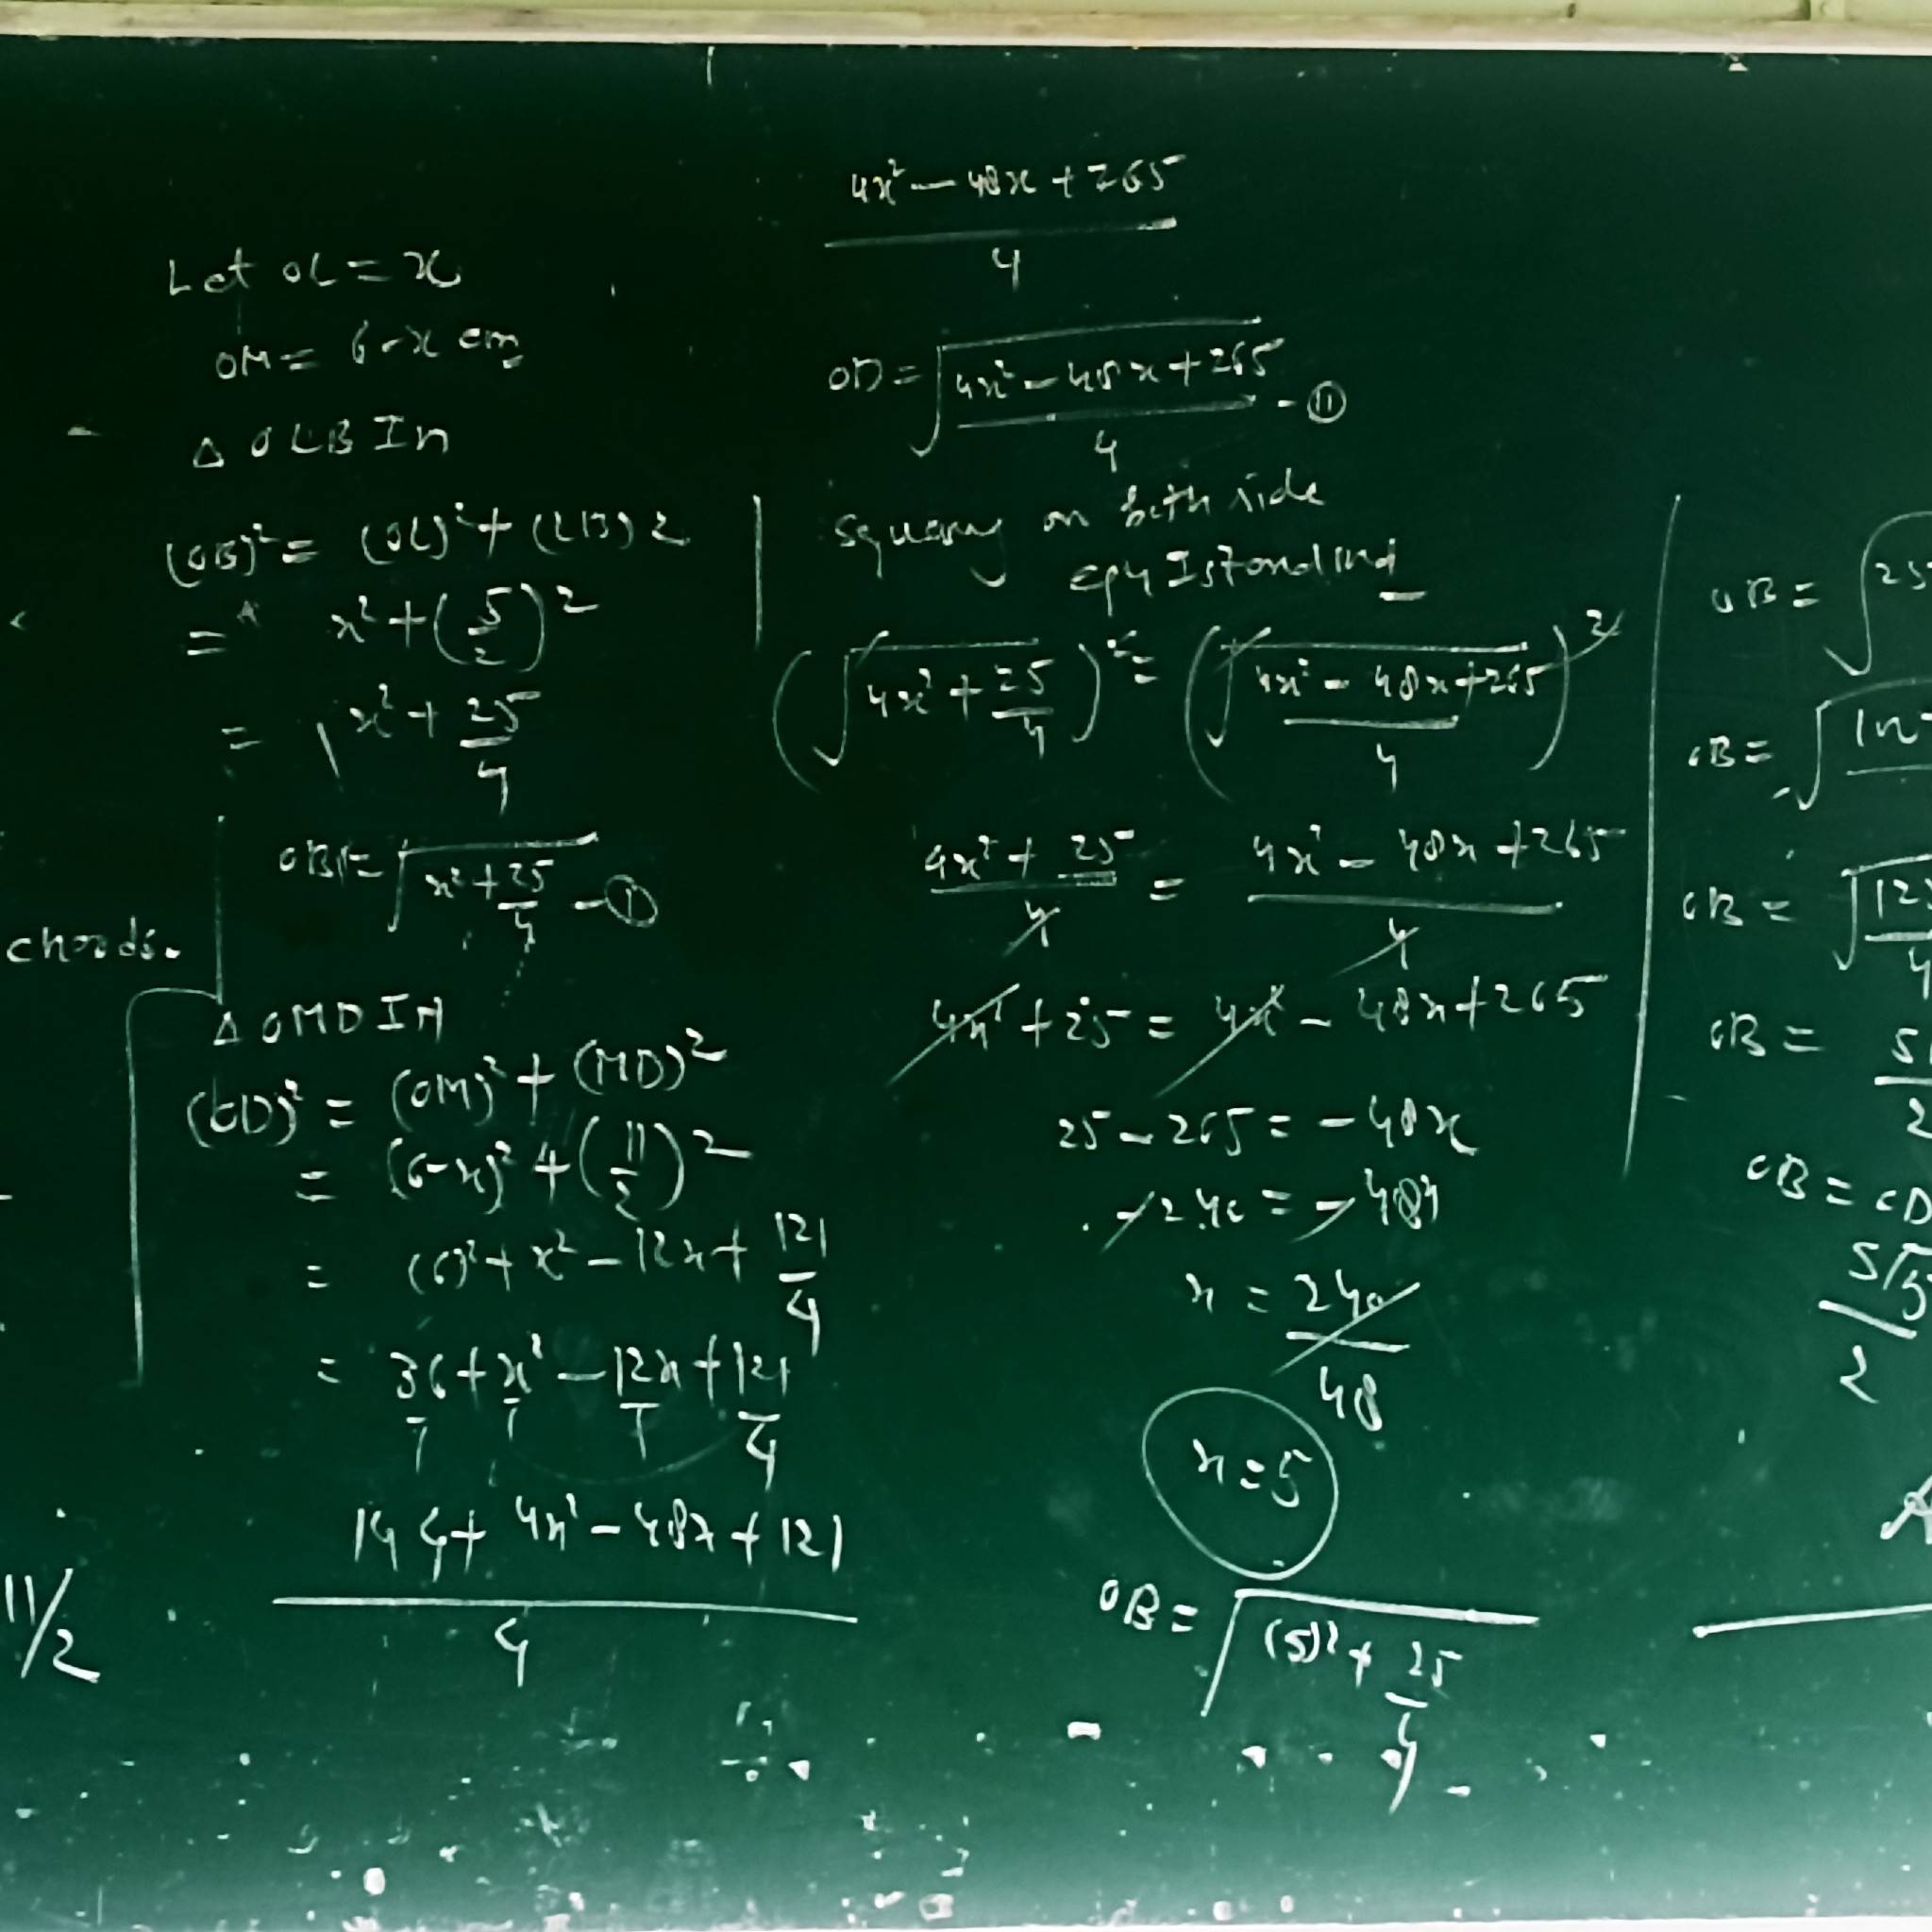 chords.
11/2
Let OL = x
OM = 6-x cm
△ OLB In
(OB)² = (OL)² + (LB)2
= x² + (5/2)²
= x² + 25/4
OB = √(x² + 25/4) - ①
△ OMD IN
(OD)² = (OM)² + (MD)²
= (6-x)² + (11/2)²
= (6)² + x² - 12x + 121/4
= 36/1 + x²/1 - 12x/1 + 121/4
(144 + 4x² - 48x + 121)/4
(4x² - 48x + 265)/4
OD = √((4x² - 48x + 265)/4) - ⑪
on both side
(√(4x² + 25/4))² = (√((4x² - 48x + 265)/4))²
(4x² + 25)/4 = (4x² - 48x + 265)/4
4x² + 25 = 4x² - 48x + 265
25 - 265 = -48x
-240 = -48x
x = 240/48
x = 5
OB = √((5)² + 25/4)
OB = √25
OB =
OB = √(12
OB = 5
2
OB = OD
5√5
2